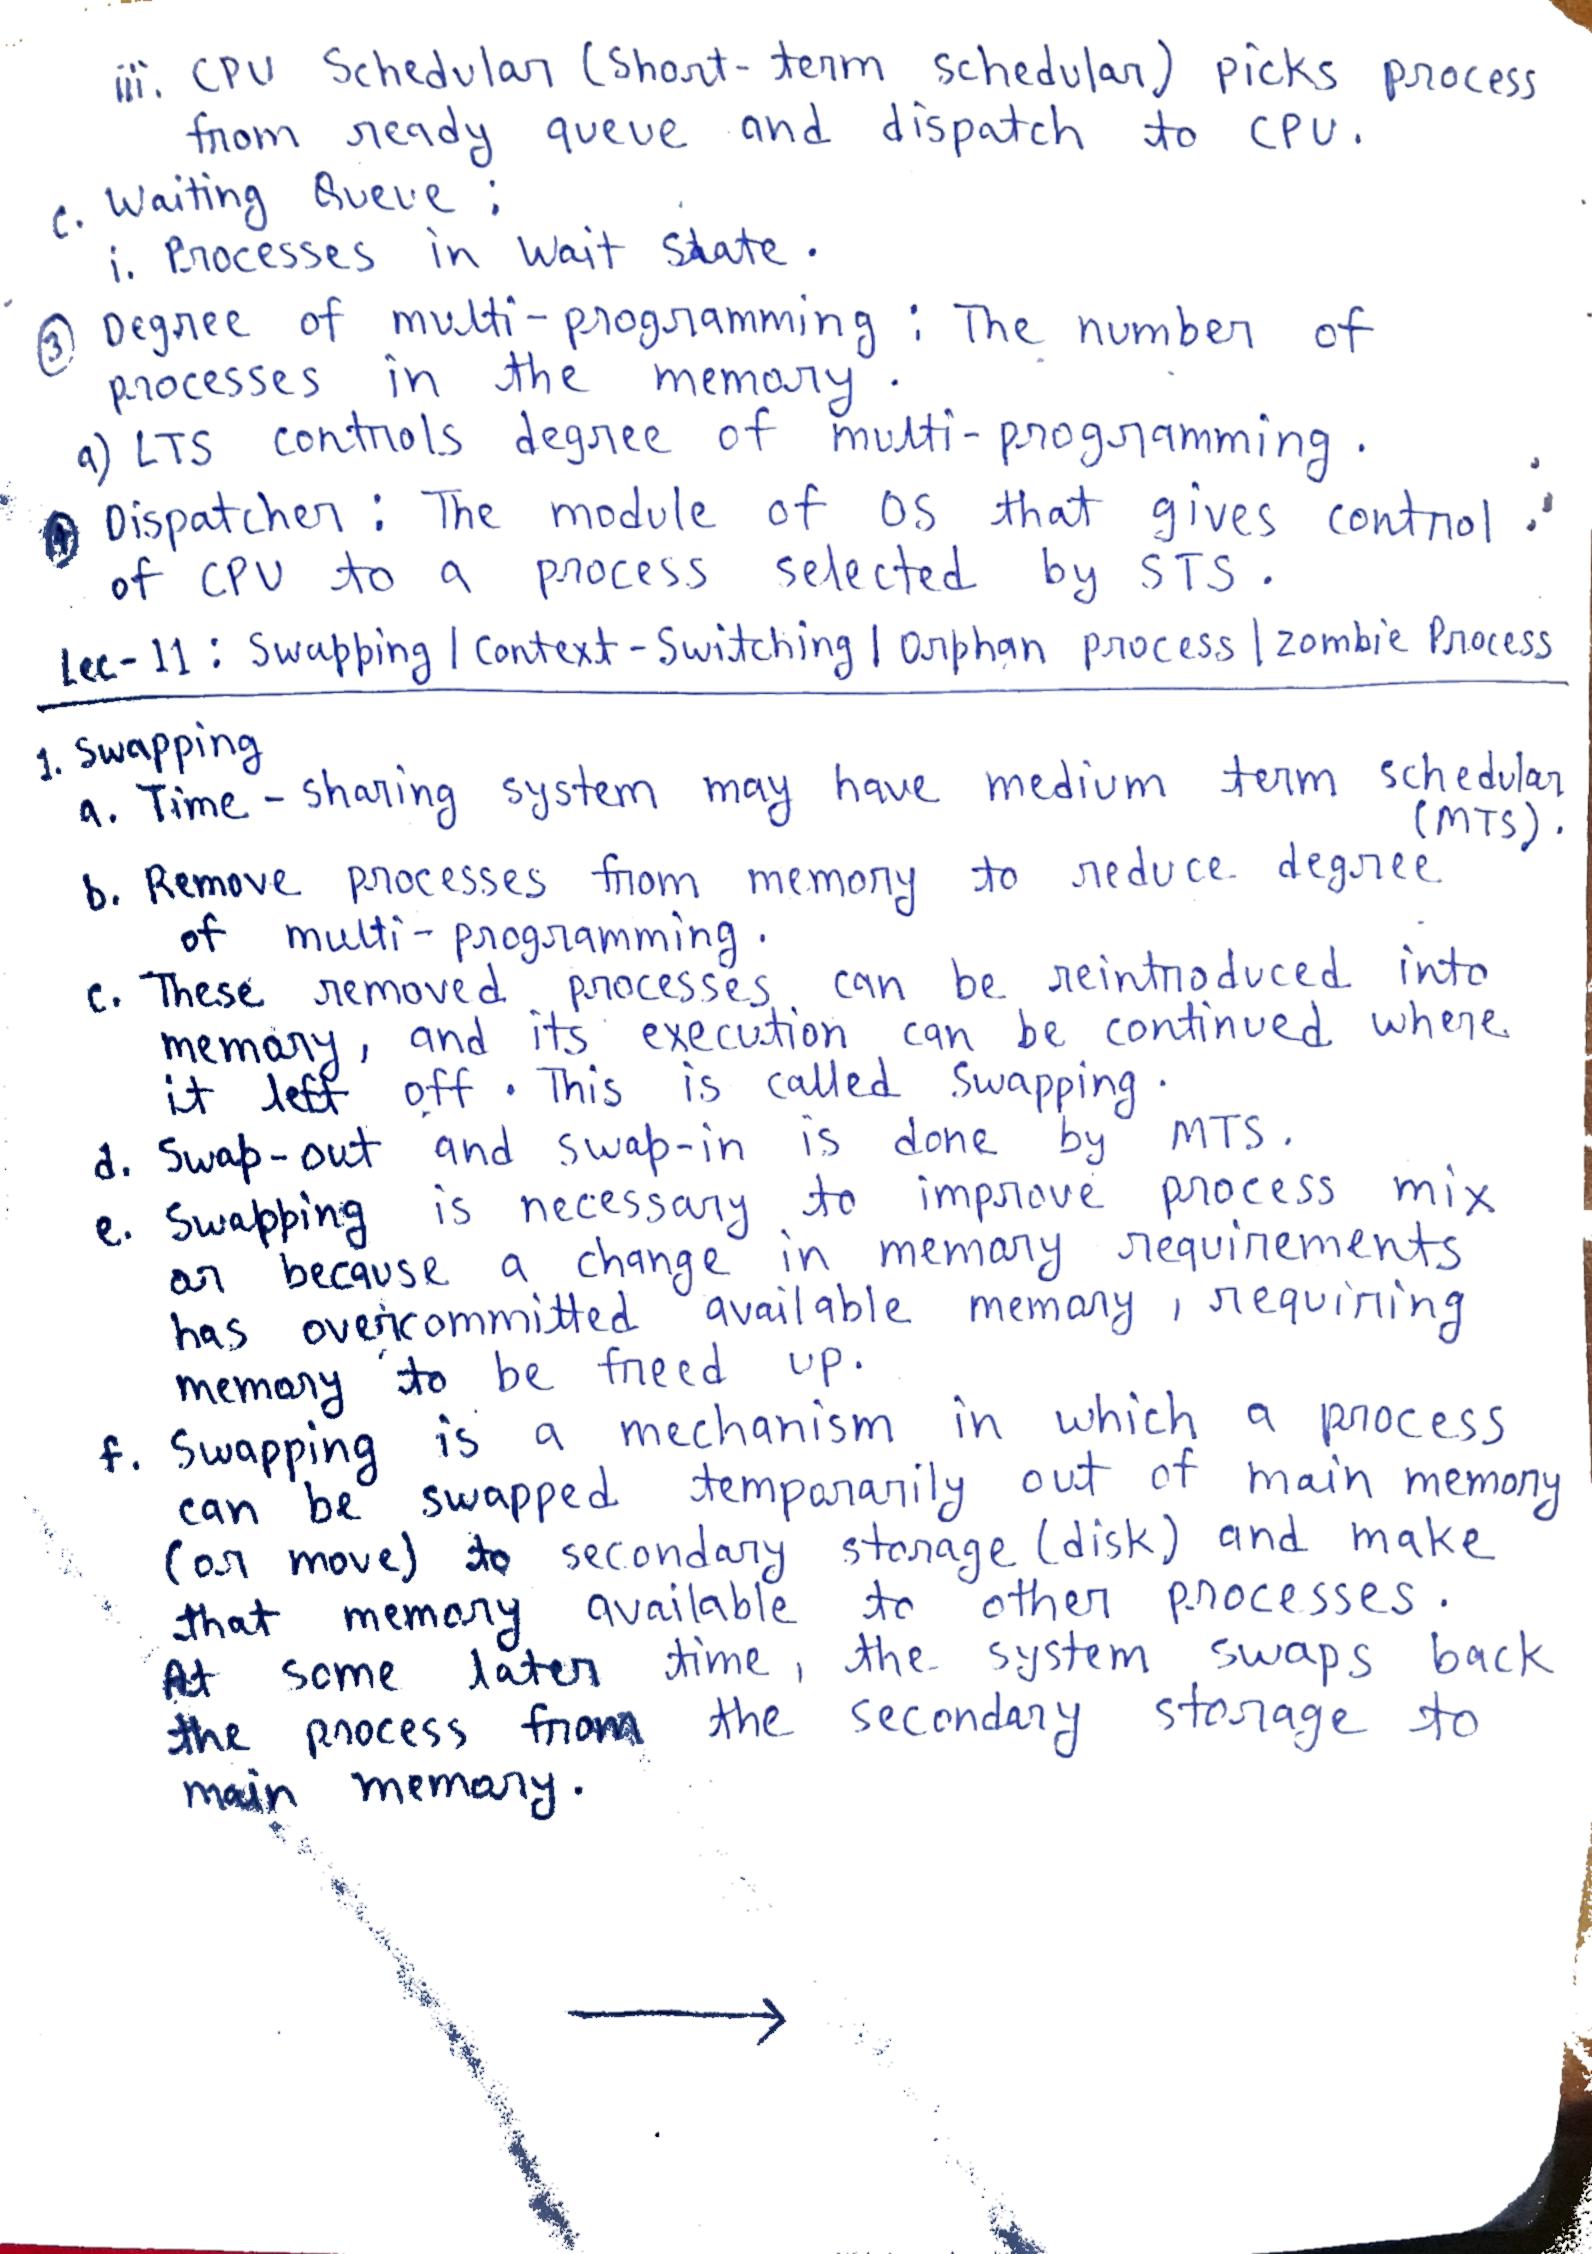 iii. CPU Schedular (Short-term schedular) picks process
from ready queue and dispatch to CPU.
c. Waiting Queue :
i. Processes in Wait State.
③ Degree of multi-programming : The number of
processes in the memory.
a) LTS controls degree of multi-programming.
④ Dispatcher : The module of OS that gives control
of CPU to a process selected by STS.
Lec-11 : Swapping | Context-Switching | Orphan process | Zombie Process
1. Swapping
a. Time-sharing system may have medium term schedular
(MTS).
b. Remove processes from memory to reduce degree
of multi-programming.
c. These removed processes can be reintroduced into
memory, and its execution can be continued where
it left off. This is called Swapping.
d. Swap-out and swap-in is done by MTS.
e. Swapping is necessary to improve process mix
or because a change in memory requirements
has overcommitted available memory, requiring
memory to be freed up.
f. Swapping is a mechanism in which a process
can be swapped temporarily out of main memory
(or move) to secondary storage (disk) and make
that memory available to other processes.
At some later time, the system swaps back
the process from the secondary storage to
main memory.